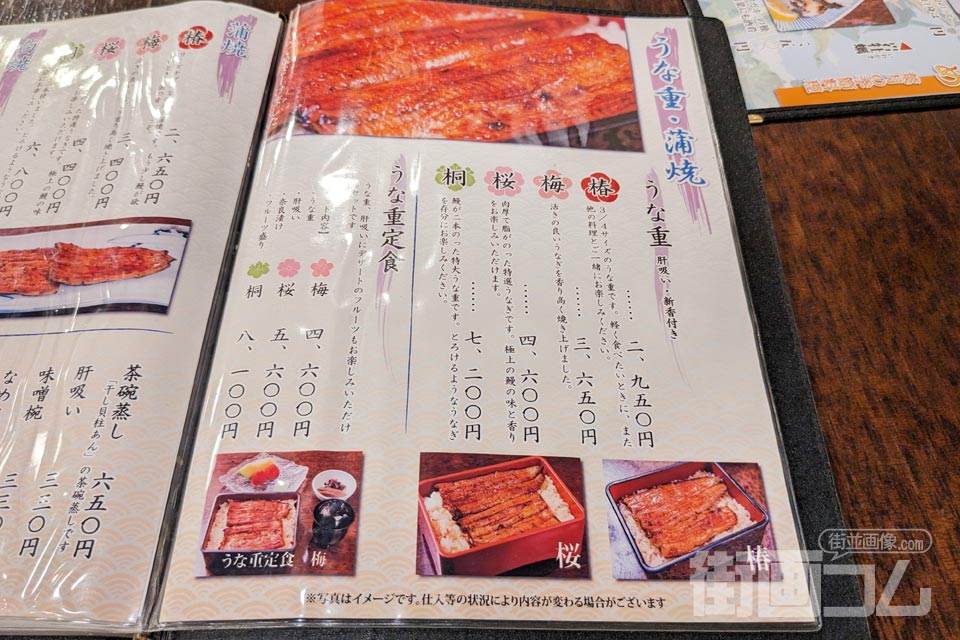 うな重・蒲焼
うな重 肝吸い・新香付き
椿
3/4サイズのうな重です。軽く食べたいときに、また
他の料理とご一緒にお楽しみください。
……二、九五〇円
梅
活きの良いうなぎを香り高く焼き上げました。
……三、六五〇円
桜
肉厚で脂がのった特選うなぎです。極上の鰻の味と香り
をお楽しみいただけます。
……四、六〇〇円
桐
鰻が二本のった特大うな重です。とろけるようなうなぎ
を存分にお楽しみください。
……七、二〇〇円
うな重定食
うな重、肝吸いにデザートのフルーツもお楽しみいただけ
セットです
ト内容】
うな重
・肝吸い
・奈良漬け
・フルーツ盛り
梅 四、六〇〇円
桜 五、六〇〇円
桐 八、一〇〇円
うな重定食 梅
桜
椿
※写真はイメージです。仕入等の状況により内容が変わる場合がございます
蒲焼
椿
二、六五〇円
梅
三、四〇〇円
桜
四、四〇〇円
六、八〇〇円
茶碗蒸し
「干し貝柱あん」の茶碗蒸しです
六五〇円
肝吸い
味噌椀
三三〇円
なめ
三三〇
街並画像.com
街画コム